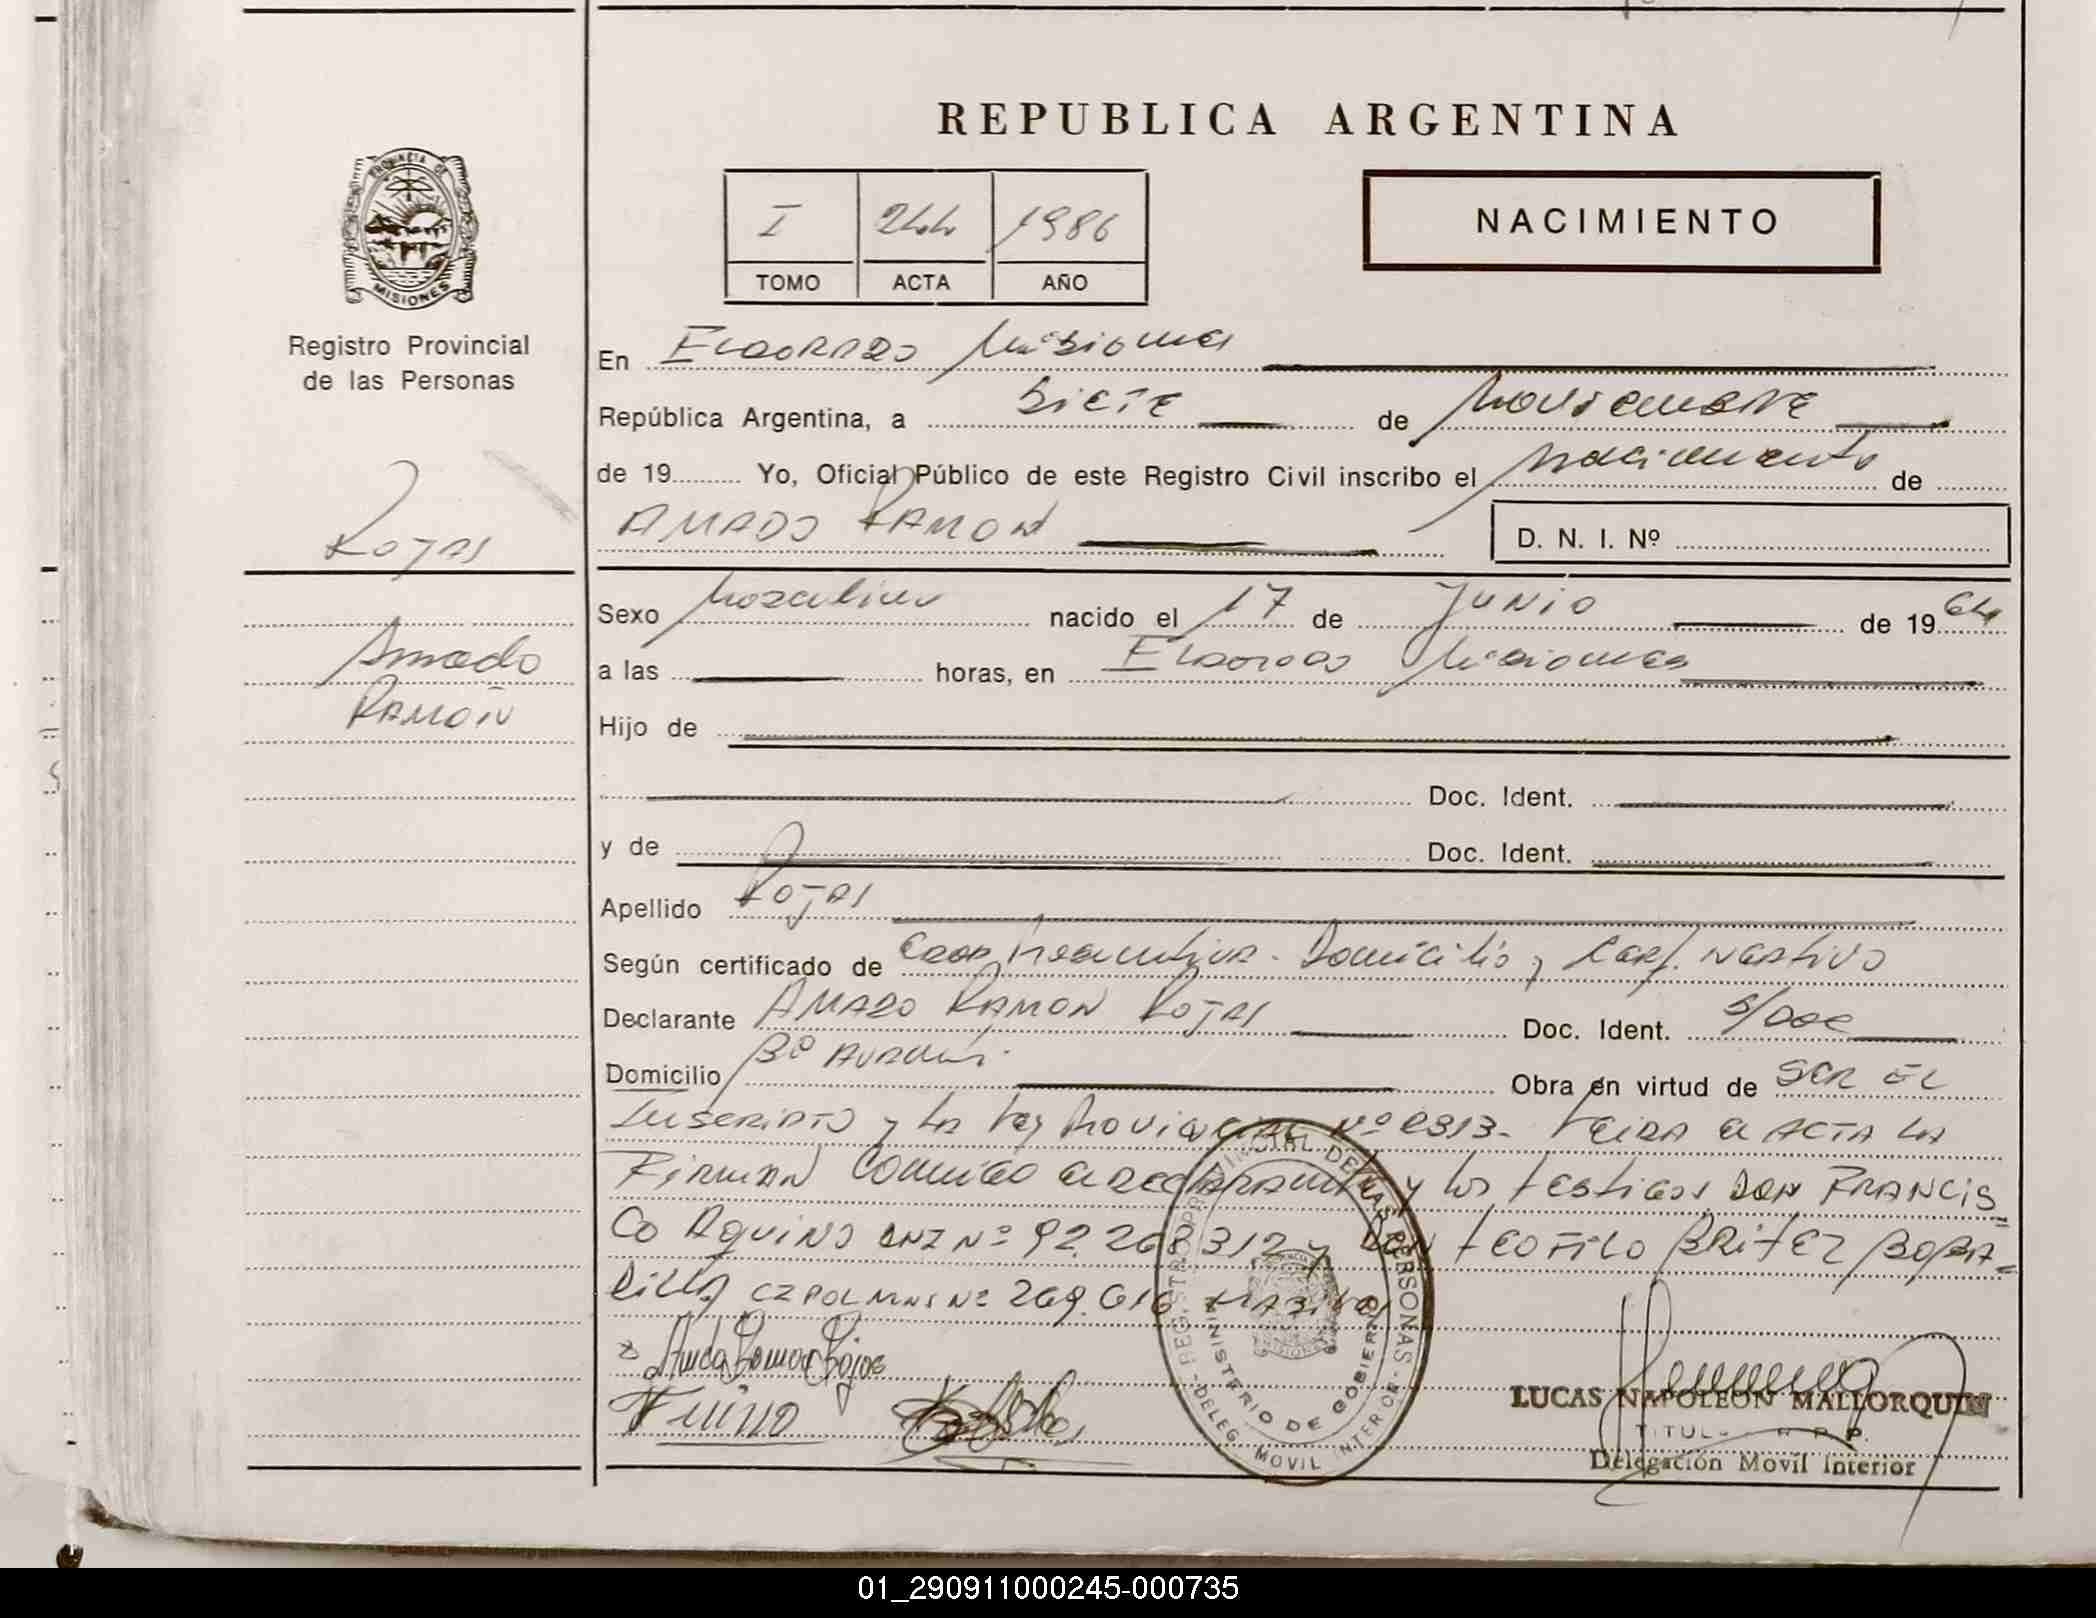 REPUBLICA ARGENTINA
I 244 1986
TOMO ACTA AÑO
NACIMIENTO
PROVINCIA DE
MISIONES
Registro Provincial
de las Personas
Rojas
Amado
Ramón
En ELDORADO Misiones
República Argentina, a Siete de Noviembre
de 19 Yo, Oficial Público de este Registro Civil inscribo el nacimiento de
AMADO RAMON
D. N. I. Nº
Sexo Masculino nacido el 17 de Junio de 1964
a las horas, en Eldorado Misiones
Hijo de
Doc. Ident.
y de Doc. Ident.
Apellido Rojas
Según certificado de Domicilio y Cert. Negativo
Declarante AMADO RAMON ROJAS Doc. Ident. S/DOC
Domicilio Bº Obra en virtud de SER EL
Inscripto y la Ley Provincial Nº 2313. Leida el ACTA LA
Firman Conmigo el declarante y los testigos DON FRANCIS=
Co Aquino Nº 92.268312 y Don TEOFILO BRITEZ BOBA=
dilla CZ POL MNS Nº 269.616
Amado Ramon Rojas
REG. PROVINCIAL DE LAS PERSONAS
MINISTERIO DE GOBIERNO
-DELEG. MOVIL INTERIOR-
LUCAS NAPOLEON MALLORQUIN
TITULAR R. P. P.
Delegación Movil Interior
01_290911000245-000735